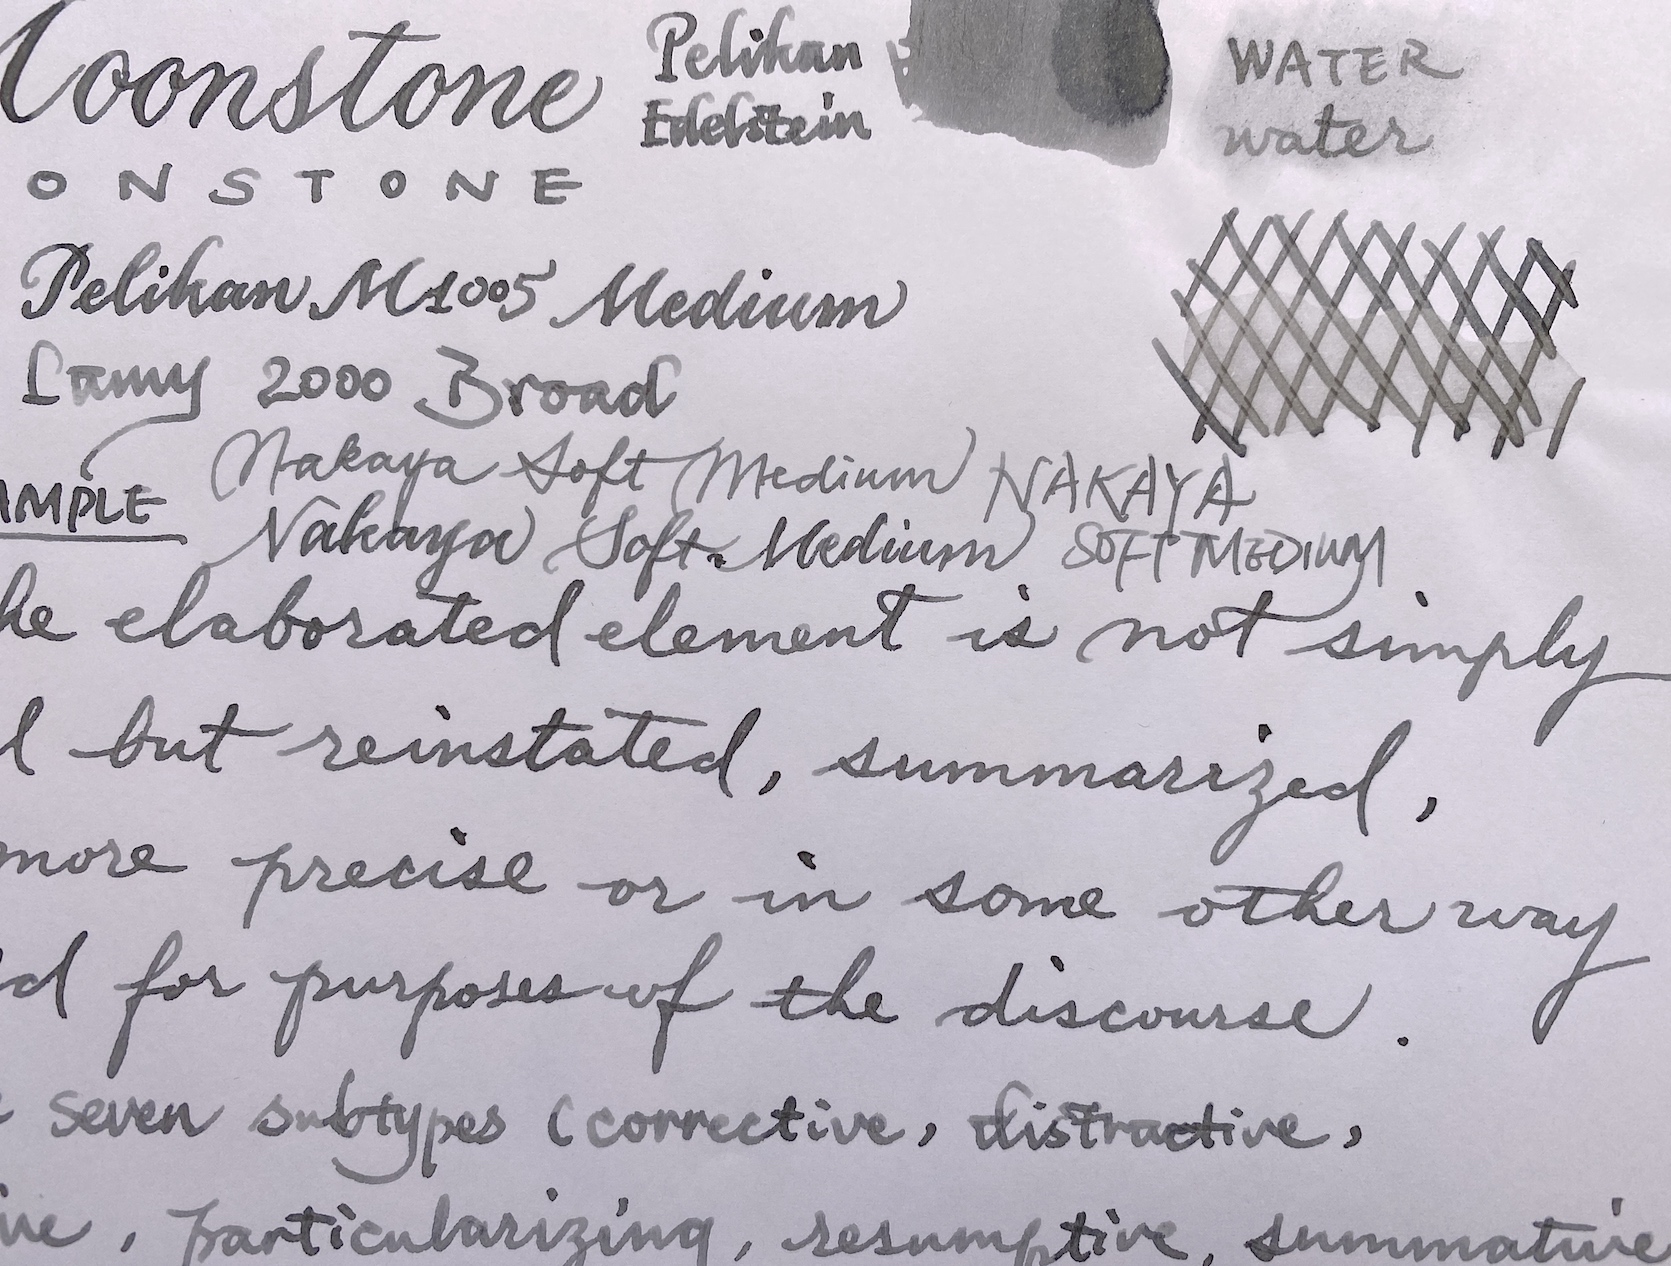 oonstone
Pelikan
Edelstein
WATER
water
ONSTONE
Pelikan M1005 Medium
Lamy 2000 Broad
AMPLE
Nakaya Soft Medium NAKAYA
Nakaya Soft. Medium SOFT MEDIUM
he elaborated element is not simply
l but reinstated, summarized,
more precise or in some other way
d for purposes of the discourse.
seven subtypes (corrective, distractive,
ive, particularizing, resumptive, summative